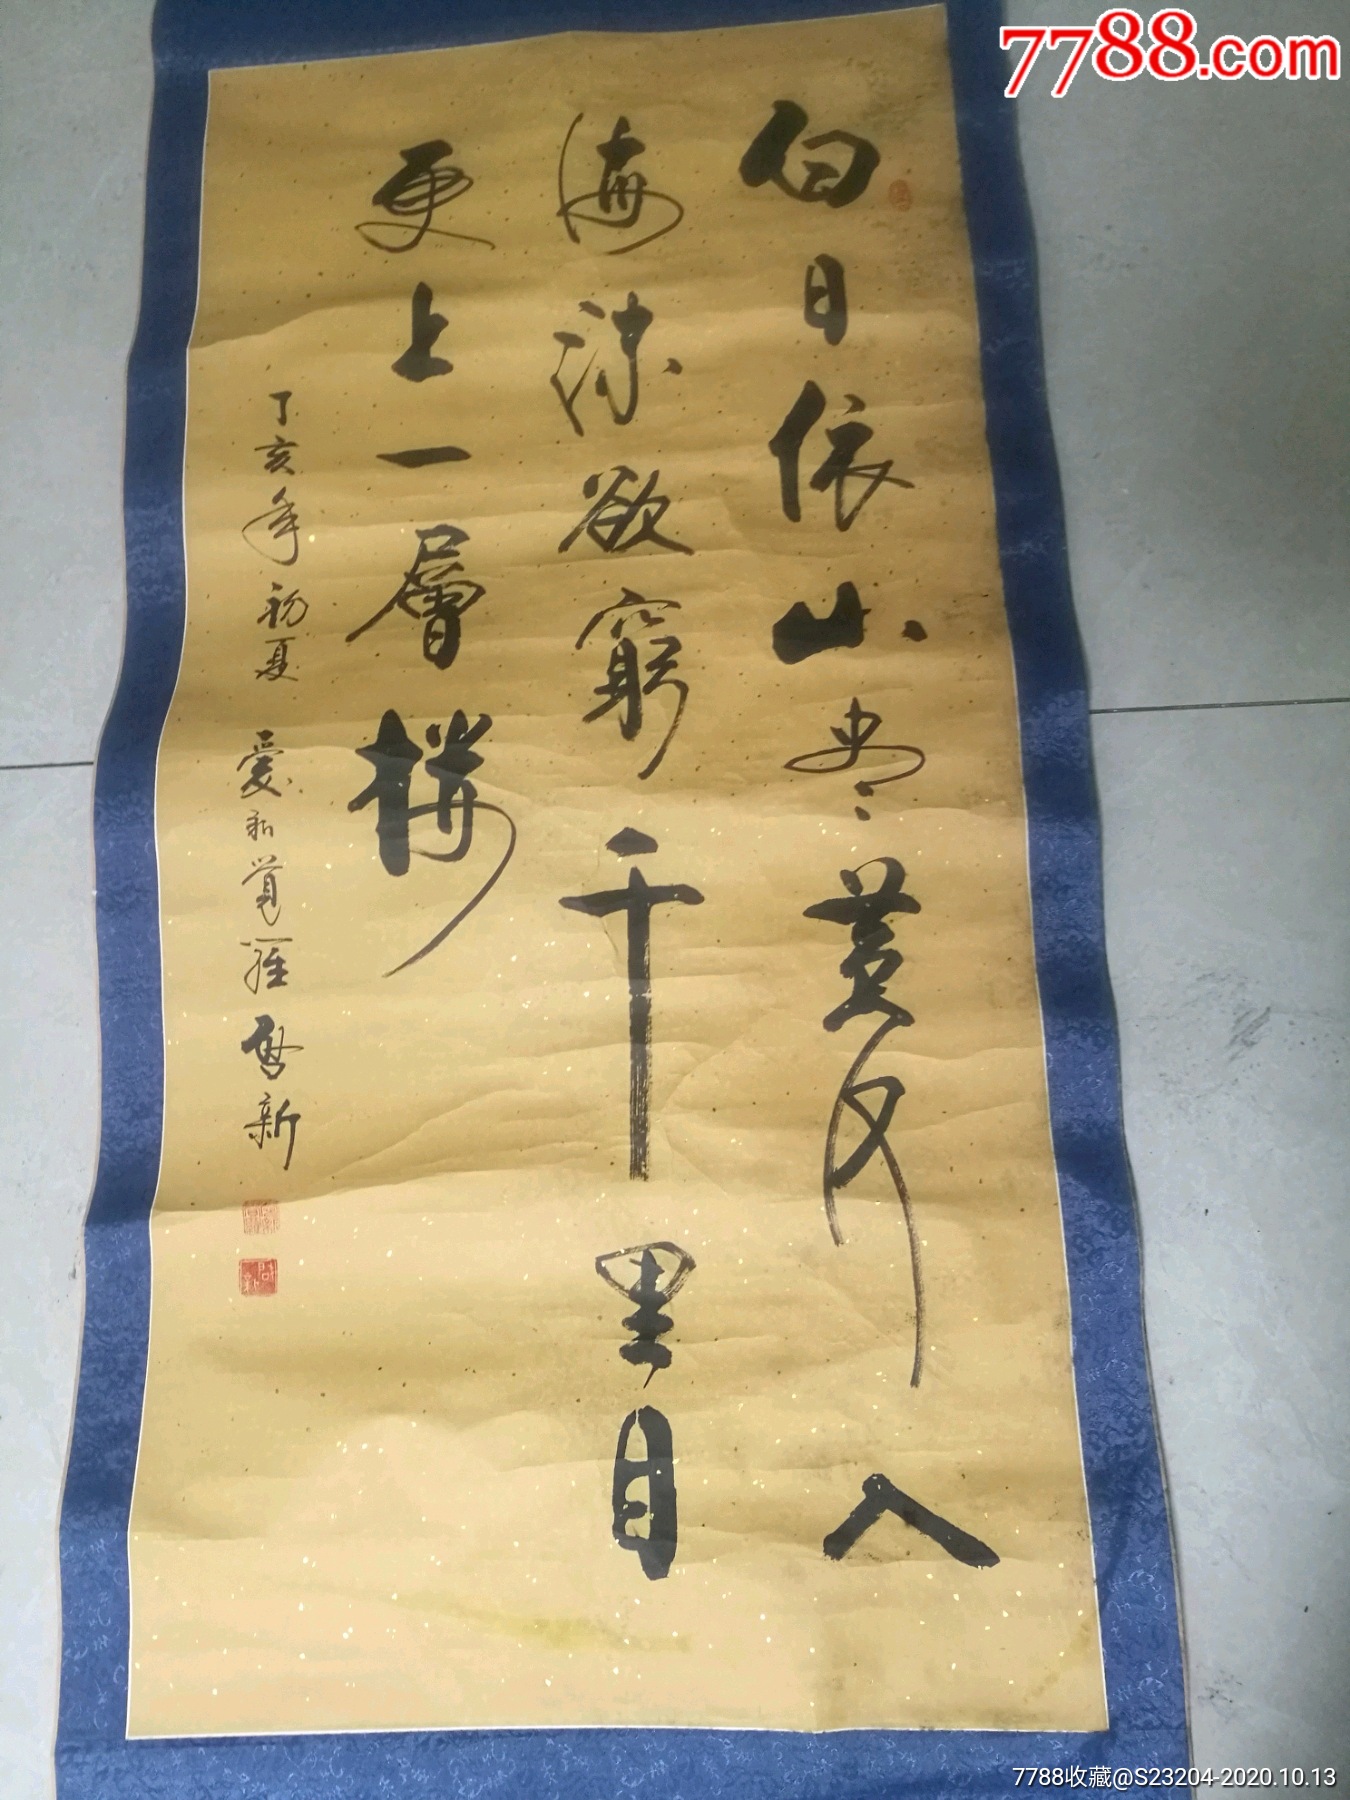 7788.com
白日依山尽黄河入
海流欲窮千里目
更上一層楼
丁亥年初夏 愛新覚羅 啓新
7788收藏@S23204-2020.10.13